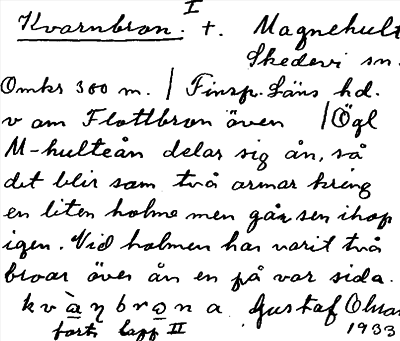 I
Kvarnbron. +. Magnehult
Skedevi sn.
Omkr 300 m. | Finsp. Läns hd.
v om Flottbron även | Ögl
M-hulteån delar sig ån, så
det blir som två armar kring
en liten holme men går sen ihop
igen. Vid holmen har varit två
broar över ån en på var sida.
kvàŋbrona Gustaf Olsson
forts lapp II 1933